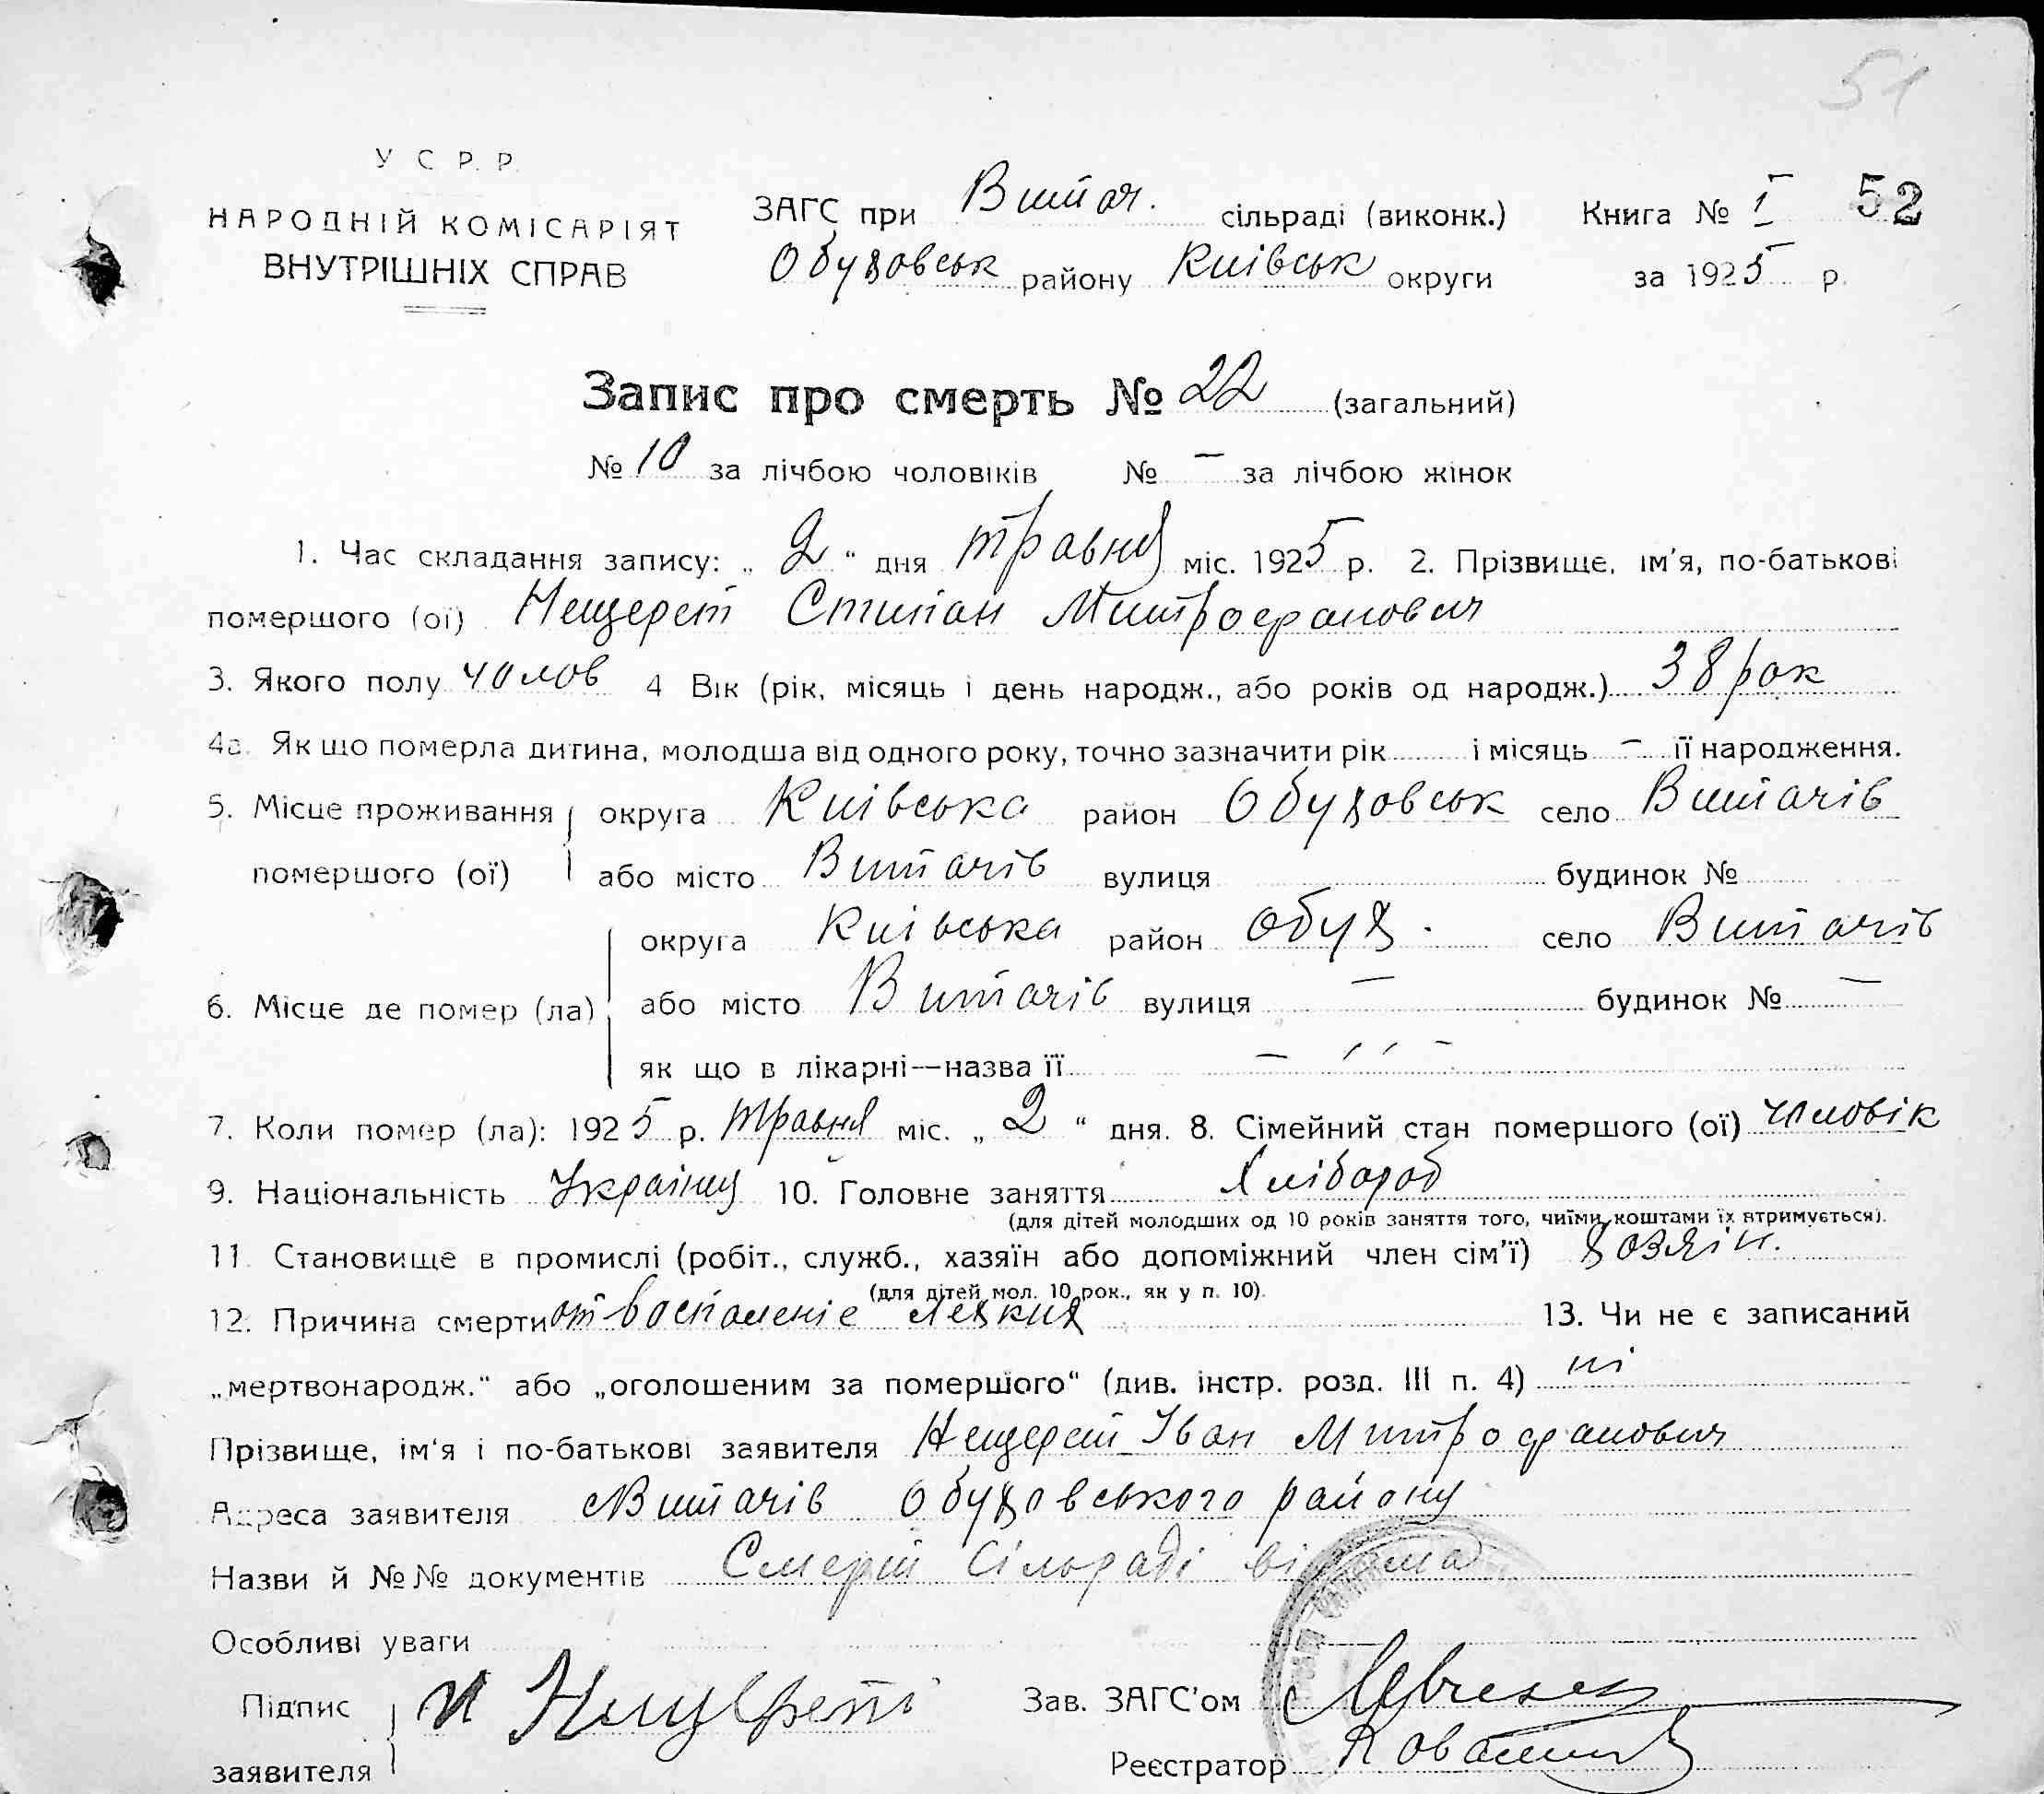 51
У С Р. Р.
НАРОДНІЙ КОМІСАРІЯТ
ВНУТРІШНІХ СПРАВ
ЗАГС при Витач. сільраді (виконк.) Книга № I 52
Обуховськ району Київськ округи за 1925 р.
Запис про смерть № 22 (загальний)
№ 10 за лічбою чоловіків № — за лічбою жінок
1. Час складання запису: „ 2 “ дня травня міс. 1925 р. 2. Прізвище, ім'я, по-батькові
помершого (ої) Нещерет Стипан Митрофанович
3. Якого полу чолов 4 Вік (рік, місяць і день народж., або років од народж.) 38 рок
4а. Як що померла дитина, молодша від одного року, точно зазначити рік і місяць — її народження.
5. Місце проживання округа Київська район Обуховськ село Витачів
помершого (ої) або місто Витачів вулиця будинок №
округа Київська район Обух. село Витачів
6. Місце де помер (ла) або місто Витачів вулиця — будинок № —
як що в лікарні—назва її — ,, —
7. Коли помер (ла): 1925 р. травня міс. „ 2 “ дня. 8. Сімейний стан помершого (ої) чиловік
9. Національність Українц 10. Головне заняття Хлібароб
(для дітей молодших од 10 років заняття того, чиїми коштами їх втримується).
11. Становище в промислі (робіт., служб., хазяїн або допоміжний член сім'ї) хозяін.
(для дітей мол. 10 рок., як у п. 10).
12. Причина смерти от воспаленіе лехких 13. Чи не є записаний
„мертвонародж.“ або „оголошеним за помершого“ (див. інстр. розд. III п. 4) ні
Прізвище, ім'я і по-батькові заявителя Нещерет Іван Митрофанович
Адреса заявителя Витачів Обуховського району
Назви й №№ документів Смерт Сільраді відома
Особливі уваги
Підпис И Нищерет Зав. ЗАГС'ом
заявителя Реєстратор